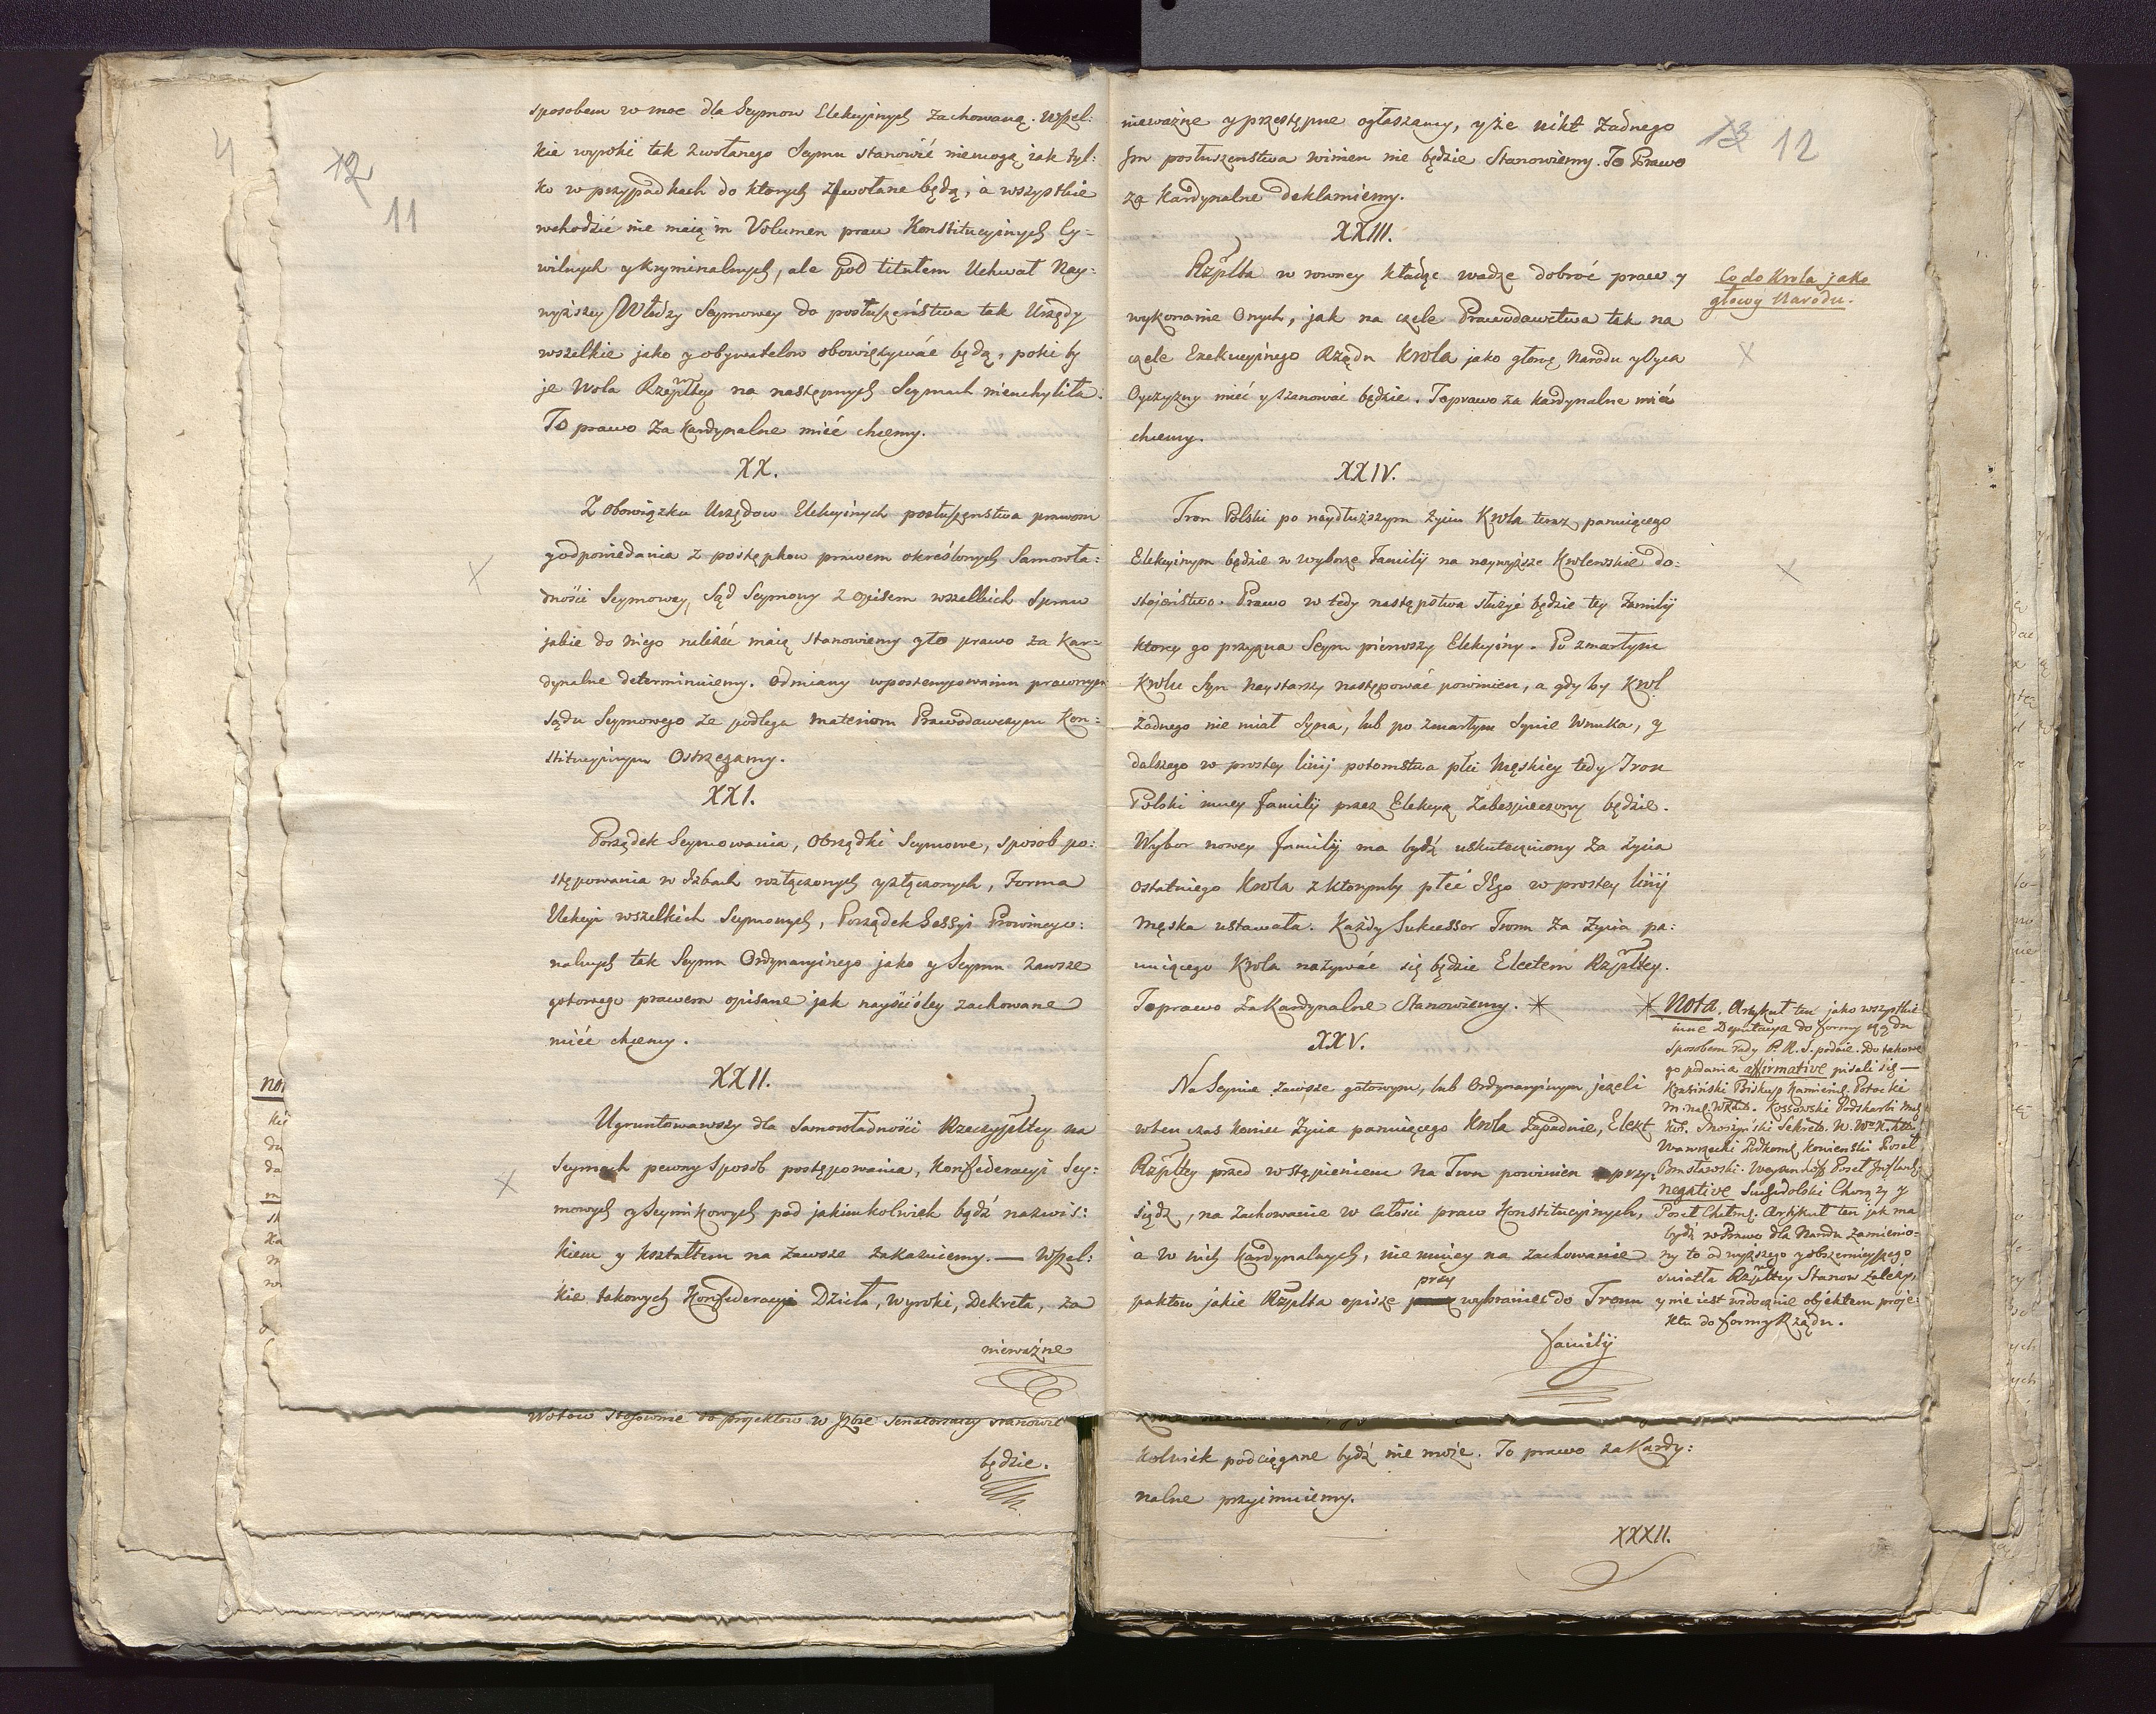 12
11
sposobem w moc dla Seymow Elekcyinych zachowaną. Wszel:
kie wyroki tak zwołanego Seymu stanowić niemogą iak tyl:
ko w przypadkach do ktorych zwołane będą, a wszystkie
wchodzić nie maią in Volumen praw Konstitucyinych Cy=
wilnych y kryminalnych, ale pod titułem Uchwał Nay:
wyższey Władzy Seymowey do posłuszeństwa tak Urzędy
wszelkie jako y obywatelow obowiązywać będą, poki by
je Wola Rzpltey na następnych Seymach nieuchyliła.
To prawo za kardynalne mieć chcemy.
XX.
Z obowiązku Urzędow Elekcyinych posłuszeństwa prawom
y odpowiedania z postępkow prawem określonych Samowła:
dności Seymowey, Sąd Seymowy z opisem wszelkich spraw
jakie do niego należeć maią stanowiemy y to prawo za Kar=
dynalne determinuiemy. Odmiany w postempowaniu prawnym
sądu Seymowego że podlega materiom Prawodawczym Kon:
stitucyinym Ostrzegamy.
XXI.
Porządek Seymowania, Obrządki Seymowe, sposob po:
stępowania w Izbach rozłączonych y złączonych, Forma
Elekcyi wszelkich Seymowych, Porządek Sessyi Prowincyo:
nalnych tak Seymu Ordynaryinego jako y Seymu zawsze
gotowego prawem opisane jak nayściśley zachowane
mieć chcemy.
XXII.
Ugruntowawszy dla Samowładności Rzeczypltey na
Seymach pewny sposób postępowania, Konfederacyi Sey:
mowych y Seymikowych pod jakimkolwiek bądź nazwis:
kiem y kształtem na zawsze zakazuiemy. — Wszel:
kie takowych Konfederacyi Dzieła, Wyroki, Dekreta, za
nieważne
Wotow stosownie do projektow w Izbie Senatorskiey stanowić
będzie.
13 12
nieważne y przestępne ogłaszamy, y że nikt żadnego
Im posłuszenstwa winien nie będzie Stanowiemy. To Prawo
za Kardynalne deklaruiemy.
XXIII.
Rzplta w rowney kładąc wadze dobroć praw y
wykonanie Onych, jak na czele Prawodawctwa tak na
czele Exekucyinego Rządu Krola jako głowę Narodu y Oyca
Oyczyzny mieć y szanować będzie. To prawo za kardynalne mieć
chcemy.
Co do Krola jako
głowy Narodu.
XXIV.
Tron Polski po naydłuższym życiu Krola teraz panuiącego
Elekcyinym będzie w wyborze Familij na naywyższe Krolewskie do:
stojeństwo. Prawo w tedy następstwa służyć będzie tey Familij
ktorey go przyzna Seym pierwszy Elekcyiny. Po zmarłym
Krolu Syn Naystarszy następować powinien, a gdy by Krol
żadnego nie miał Syna, lub po zmarłym Synie Wnuka, y
dalszego w prostey linij potomstwa płci Męskiey tedy Tron
Polski inney familij przez Elekcyą zabespieczony będzie.
Wybor nowey familij ma bydź uskuteczniony za życia
ostatniego Krola z ktorymby płeć Jego w prostey linij
męska ustawała. Każdy Sukcessor Tronu za życia pa:
nuiącego Krola nazywać się będzie Electem Rzpltey.
To prawo za Kardynalne Stanowiemy. *
XXV.
Na Seymie zawsze gotowym, lub Ordynaryinym jeżeli
w ten czas koniec życia panuiącego Krola zapadnie, Elekt
Rzpltey przed wstąpieniem na Tron powinien przy:
siądz, na zachowanie w całości praw Konstitucyinych,
a w nich Kardynalnych, nie mniey na zachowanie
paktow jakie Rzplta opisze przy wybraniu do Tronu
familij
* Nota. Artykuł ten jako wszystkie
inne Deputacya do formy rządu
sposobem rady P. R. S. podaie. Do takowe
go podania affirmative pisali się —
Krasiński Biskup Kamieniec. Potocki
M. nad. W. X. Lit. Kossowski Podskarbi nad
Kor.
Wawrzecki Poseł
Brasławski. Weyssenhoff Poseł Inflant.
negative Suchodolski Chorąży y
Poseł Chełms. Artykuł ten jak ma
bydź w Prawo dla Narodu zamienio-
ny to od wyższego y obszernieyszego
swiatła Rzpltey Stanow zależy,
y nie iest widocznie objektem proje:
ktu do formy Rządu.
kolwiek podciągane bydź nie może. To prawo za Kardy:
nalne przyimuiemy.
XXXII.